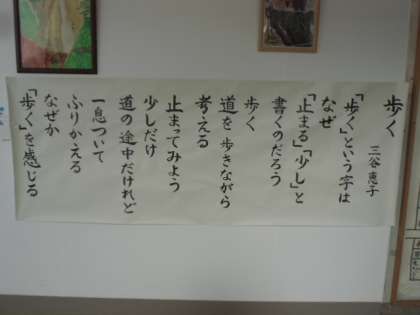 歩く
三谷恵子
「歩く」という字は
なぜ
「止まる」「少し」と
書くのだろう
歩く
道を歩きながら
考える
止まってみよう
少しだけ
道の途中だけれど
一息ついて
ふりかえる
なぜか
「歩く」を感じる